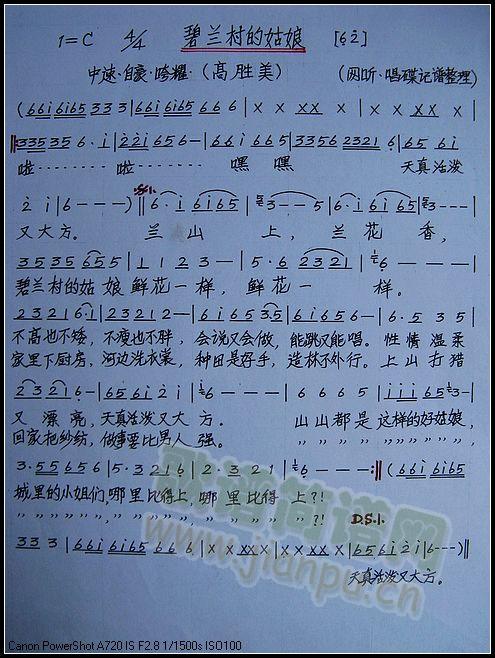 1=C 4/4 碧兰村的姑娘 [6 2]
中速·自豪·夸耀·(高胜美) (网听·唱碟记谱整理)
(66i 6i65 33 3|66i 6i65 66 6|x x xx x|x xx xx x|
‖:335 35 6·i|22i 65 6-|66i 6 665|3356 2321 6|65 6i
啦········· 啦········· 嘿 嘿 天真活泼
2 i|6---)‖S1. 6·i 6i65|3--5|6·i 6i65|3---|
又大方。 兰 山 上, 兰 花 香,
35 35 65 5|1 1 2 3-|5·6 2321|6---|
碧兰村的姑 娘 鲜花一 样, 鲜花一 样。
2321 6·1|2321 2-|66i 65 3·5|66i 65 6-|6·5 3 5|
不高也不矮, 不瘦也不胖, 会说又会做, 能跳又能唱。 性情温柔
家里下厨房, 河边洗衣裳, 种田是好手, 造林不外行。 上山打猎
2321 6-|65 6i 2 i|6---|6 6 6 5|iii 65 3-|
又 漂 亮, 天真活泼又大 方. 山山都是 这样的好姑娘,
回家把纱纺, 做事要比男人 强。 〃 〃 〃 〃 〃 〃 〃 〃 〃 〃,
3·5 565 6|5·3 21 6|2·3 2 1|6--:‖(66i 6i65
城里的小姐们, 哪 里 比得上, 哪 里 比得 上?!
〃 〃 〃 〃 〃 〃, 〃 〃 〃 〃 〃, 〃 〃 〃 〃 〃?! D.S.1.
33 3|66i 6i65 66 6|x x xx x|x xx xx x|65 6i 2 i|6---)‖
天真活泼又大方.
歌谱简谱网
www.jianpu.cn
Canon PowerShot A720 IS F2.8 1/1500s ISO100